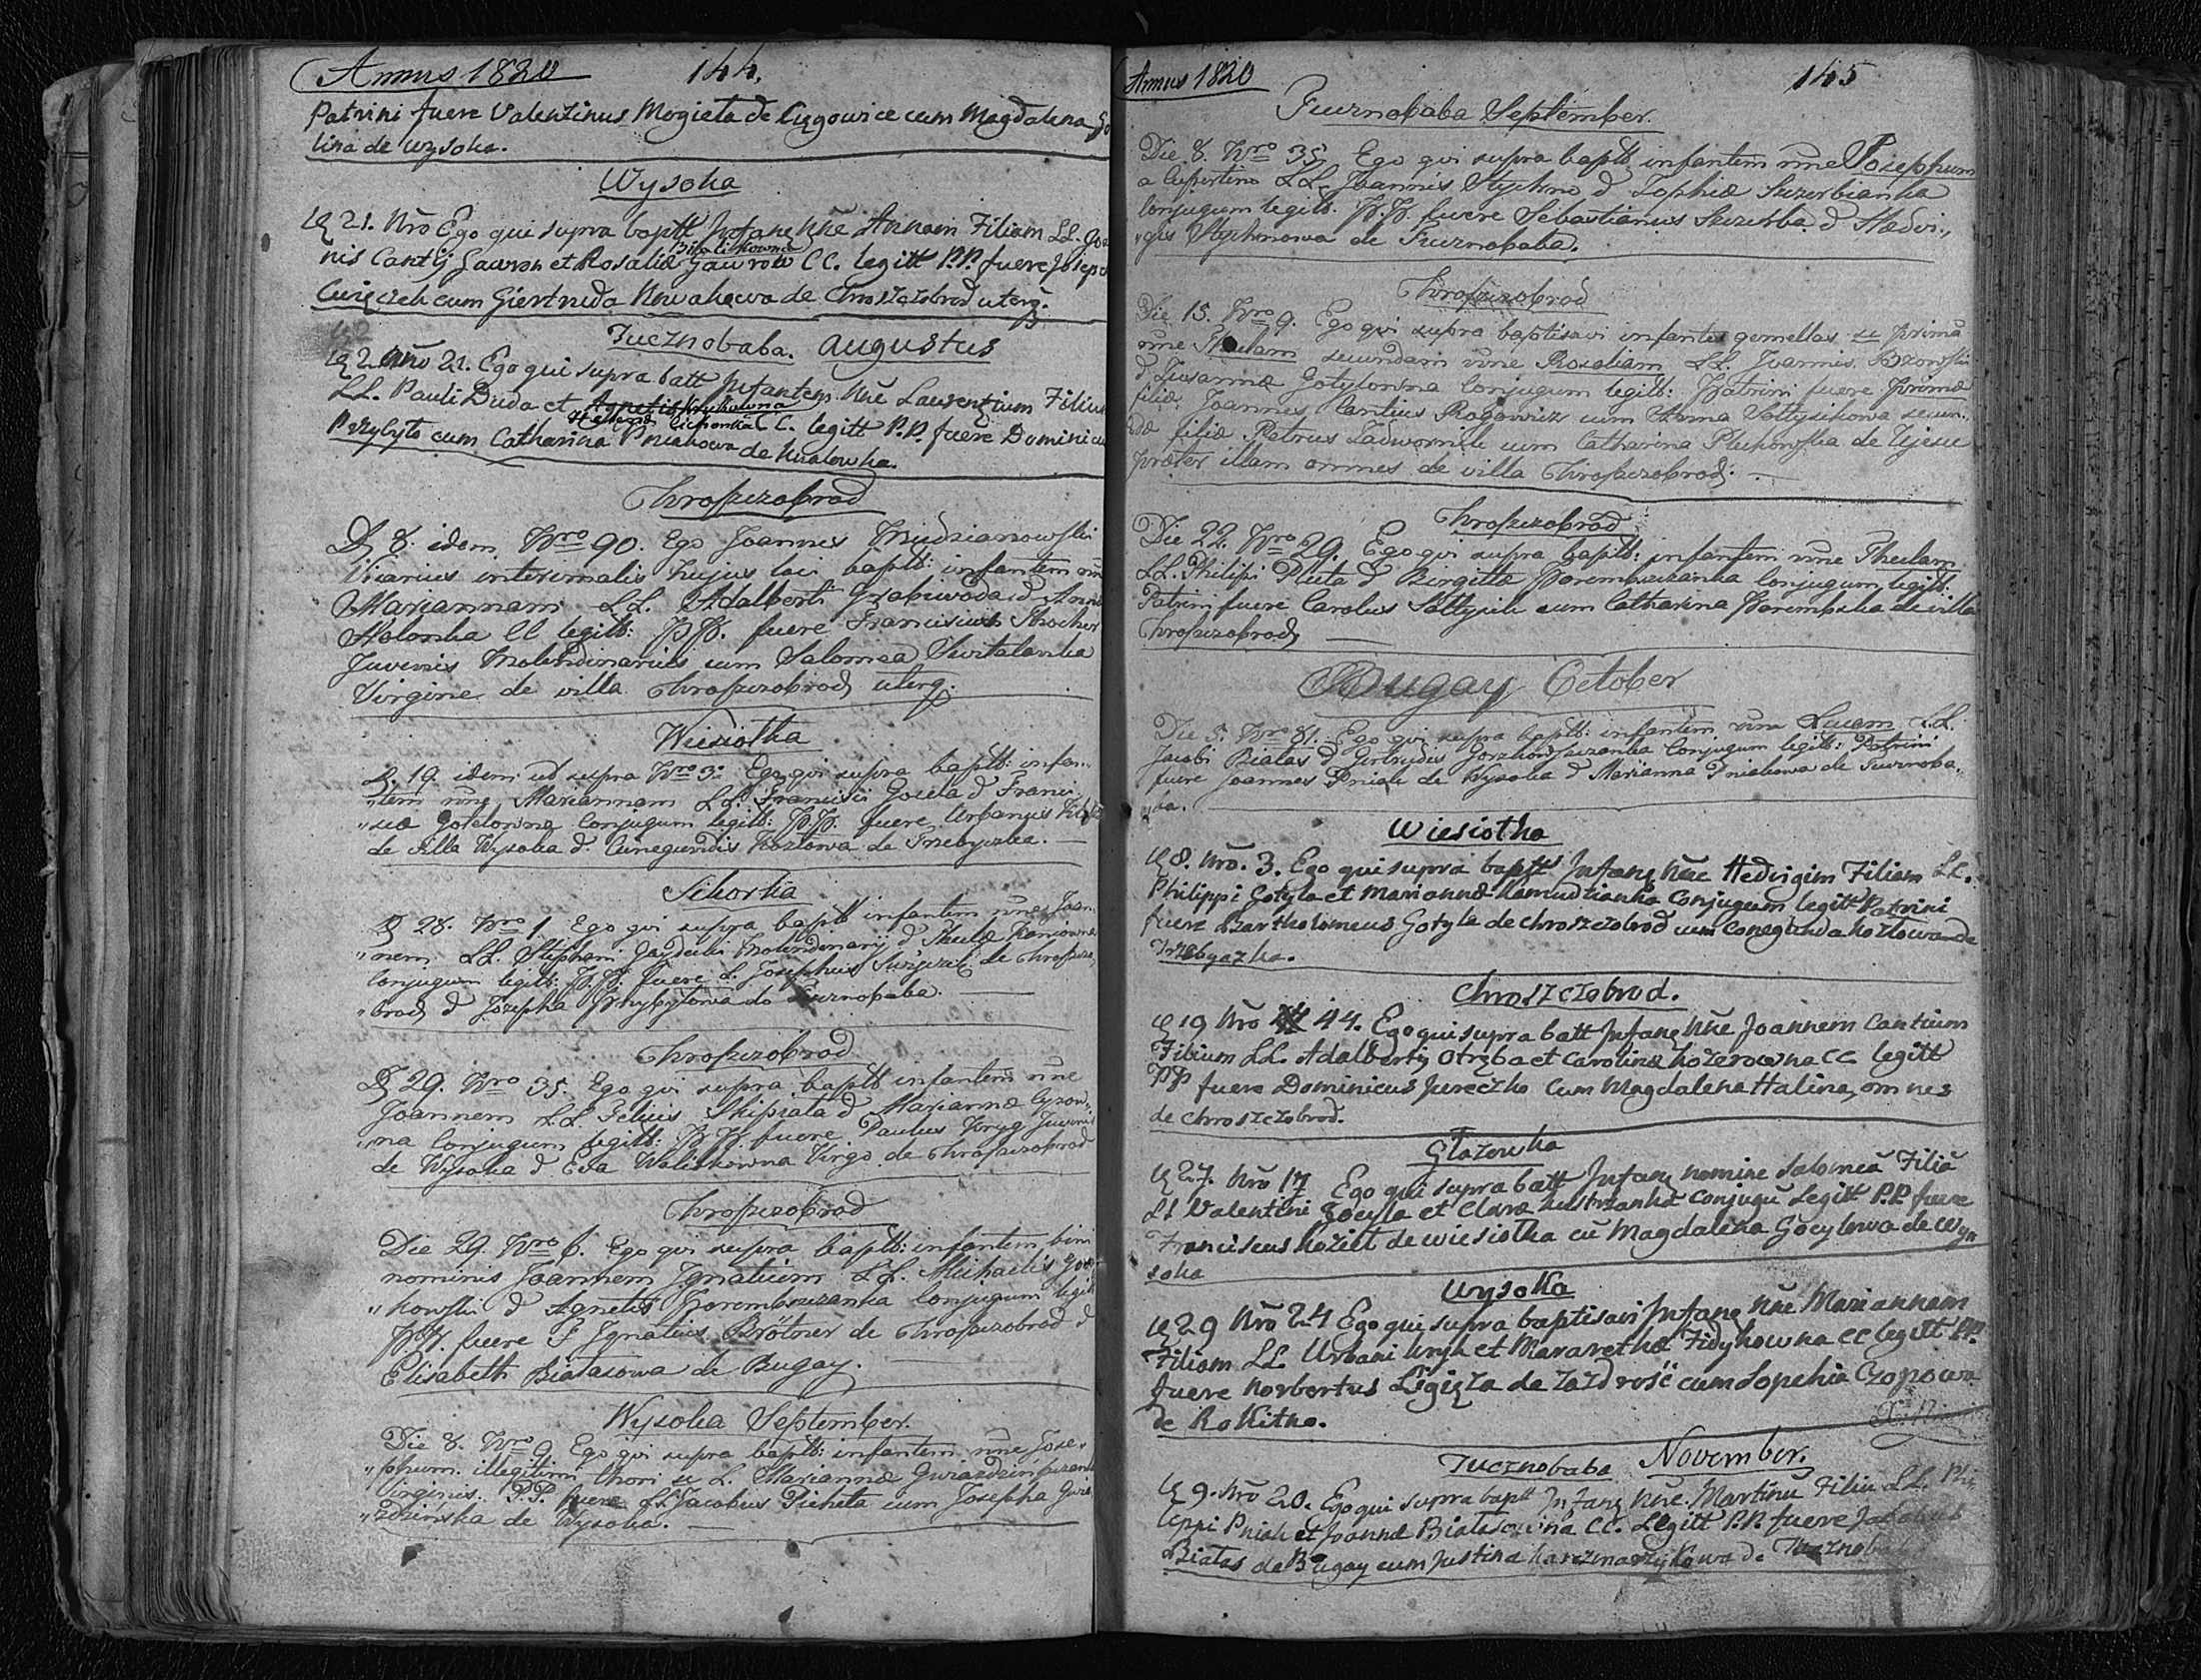 Annus 1820 144.
Patrini fuere Valentinus Mogieta de Cięgowice cum Magdalena Go
lina de Wysoka.
Wysoka
21. Nro Ego qui supra baptt Infane Nne Annam Filiam LL. Joa
Bialikowna
nis Cantij Gawron et Rosaliæ Gawrow CC. legitt P.P. fuere Joseph
cum Giertruda Nowakowa de Chroszczobrod uterq.
Tucznobaba. Augustus
2 Nro 21. Ego qui supra batt Infantem Nne Laurentium Filium
LL. Pauli Duda et Agnetis C. legitt P.P. fuere Dominicus
Przybyła cum Catharina Pniakowa de
Chroszczobrod
D 8. idem Nro 90. Ego Joannes Trudzianowski
Vicarius interimalis hujus loci baptb: infantem nne
Mariannam LL. Adalberti Grabiwoda & Anna
Holonka CC legitb: PP. fuere Franciscus
Juvenis Molendinarius cum Salomea Switalanka
Virgine de villa Chroszczobrod uterq.
Wiesiotka
D. 19. idem ut supra Nro 3. Ego qui supra baptb: infan„
„tem nne Mariannam LL. Francisci Gocela & Franci„
„scæ Gorelowna Conjugum legitb: P.P. fuere Urbanus
de Villa Wysoka & Cunegundis Kozłowa de Trzebyczka.
Sikorka
D 28. Nro 1. Ego qui supra baptb infantem nne Joan„
„nem LL. Stephani Gaydecki Molendinarij & Theclæ
Conjugum legitb: P.P. fuere L. Josephus de Chroszczo„
„brod & Josepha Przybyłowa de Tucznobaba.
Chroszczobrod
D 29. Nro 35. Ego qui supra baptb infantem nne
Joannem LL. Felicis Skipiała & Mariannæ Cyron„
„na Conjugum legitb: P.P. fuere Paulus Kryg Juvenis
de Wysoka & Eva Walikowna Virgo de Chroszczobrod
Chroszczobrod
Die 29. Nro 6. Ego qui supra baptb: infantem bini
nominis Joannem Ignatium LL. Michaelis
„kowski & Agnetis Porembszczanka Conjugum legitb
P.P. fuere F Ignatius Brötner de Chroszczobrod &
Elisabeth Białasowa de Bugay.
Wysoka September.
Die 8. Nro 9. Ego qui supra baptb: infantem nne Jose„
„phum illegitimi thori se L. Mariannæ
Virginis. P.P. fuere LL Jacobus Picheta cum Josepha
„zdzinska de Wysoka.
Annus 1820 145
Tucznobaba September.
Die 8. Nro 35. Ego qui supra baptb infantem nne Josephum
a Cupertino LL. Joannis Stychno & Zophiæ Szczerbianka
Conjugum legitb. P.P. fuere Sebastianus Szczerba & Hedvi„
„gis Stychnowa de Tucznobaba.
Chroszczobrod
Die 15. Nro 9. Ego qui supra baptisavi infantes gemellas prima
nne Theclam secundam nne Rosaliam LL. Joannis
& Susannæ Gotylowna Conjugum legitb: Patrini fuere Primæ
filiæ Joannes Cantius Rogowicz cum Anna Sołtysikowa secun„
„dæ filiæ Petrus Zadworniik cum Catharina de
præter illam omnes de villa Chroszczobrod.
Chroszczobrod
Die 22. Nro 29. Ego qui supra baptb: infantem nne Theclam
LL. Philipi Pleta & Birgittæ Porembszczanka Conjugum legitb.
Patrini fuere Carolus Sołtysik cum Catharina Porembska de villa
Chroszczobrod
Bugay October
Die 5. Nro 81. Ego qui supra baptb: infantem nne Lucam LL.
Jacobi Białas & Gertrudis Conjugum legitb: Patrini
fuere Joannes Pniak de Wysoka & Marianna Pniakowa de Tucznoba„
„ba.
Wiesiotka
8. Nro. 3. Ego qui supra baptt Infane Nne Hedvigim Filiam LL.
Philippi Gotyla et Mariannæ Conjugum legitt Patrini
fuere Bartholomeus Gotyla de Chroszczobrod cum Conegunda Kozłowa de
Trzebyczka.
Chroszczobrod.
19 Nro 44. Ego qui supra batt Infane Nne Joannem Cantium
Filium LL. Adalberti Otręba et Carolinæ Kozerowna CC legitt
PP fuere Dominicus Jureczko cum Magdalena Halina, omnes
de Chroszczobrod.
Głazowka
27. Nro 17 Ego qui supra batt Infane nomine Salomeā Filiā
LL Valentini Gocyla et Claræ Conjugū Legitt P.P. fuere
Franciscus Kozieł de Wiesiotka cū Magdalena Gocyłowa de Wy
soka
Wysoka
29 Nro 24 Ego qui supra baptisavi Infane Nne Mariannam
Filiam LL Urbani Kryk et Mararethæ Fidykowna CC legitt PP.
fuere Norbertus Ligięza de Zazdrość cum Sophia Czopowa
de Rokitno.
Tucznobaba November.
9. Nro 20. Ego qui supra baptt Infane Nne. Martinū Filiū LL. Phi
lippi Pniak et Joannæ Białasowna CC. Legitt P.P. fuere Jakobus
Białas de Bugay cum Justina Karzmarzykowa de Tucznobaba